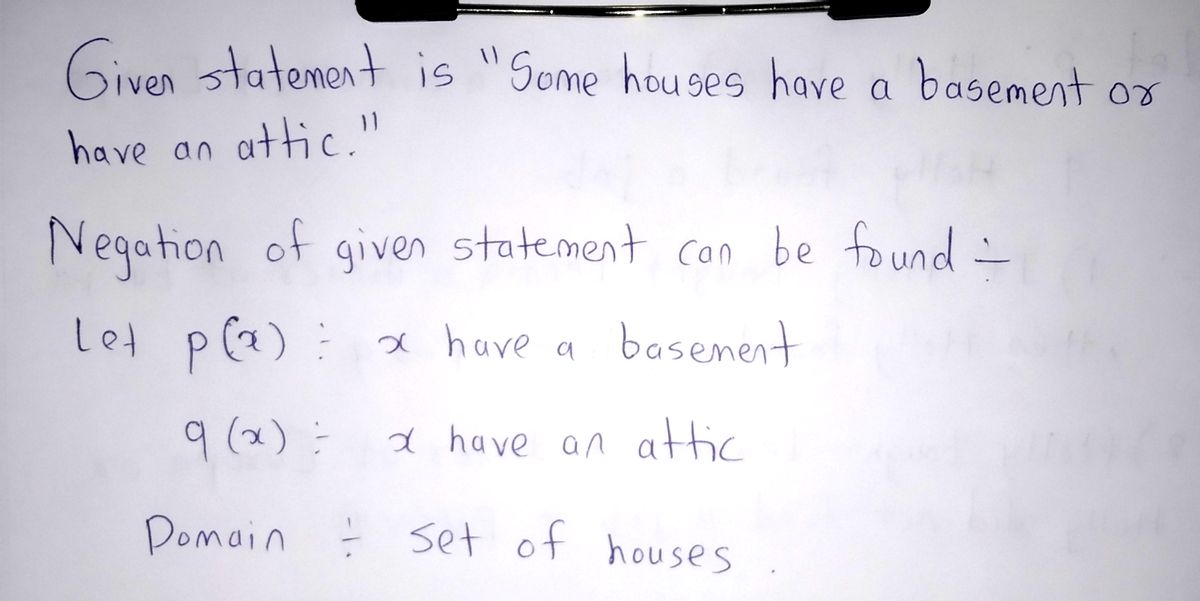 Given statement is "Some houses have a basement or
have an attic."
Negation of given statement can be found ÷
Let p(x) ÷ x have a basement
q(x) ÷ x have an attic
Domain ÷ set of houses.